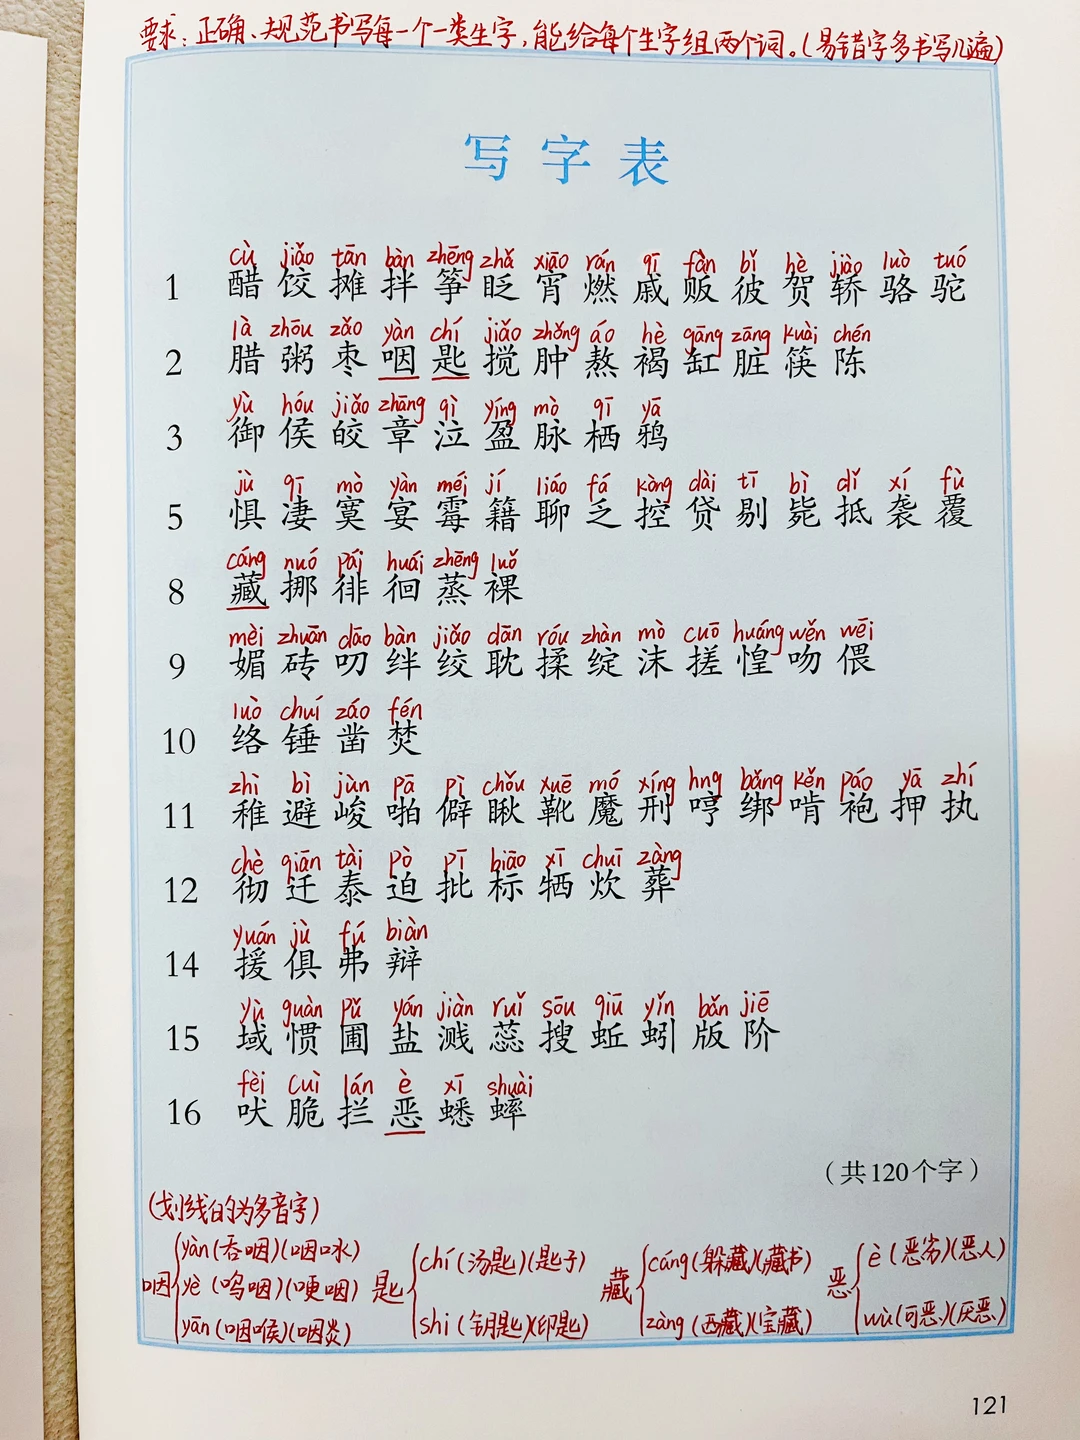 要求:正确、规范书写每一个一类生字,能给每个生字组两个词。(易错字多书写几遍)
写字表
cù jiǎo tān bàn zhēng zhǎ xiāo rán qī fàn bǐ hè jiào luò tuó
1 醋 饺 摊 拌 筝 眨 宵 燃 戚 贩 彼 贺 轿 骆 驼
là zhōu zǎo yàn chí jiǎo zhǒng áo hè gāng zāng kuài chén
2 腊 粥 枣 咽 匙 搅 肿 熬 褐 缸 脏 筷 陈
yù hóu jiǎo zhāng qì yíng mò qī yā
3 御 侯 皎 章 泣 盈 脉 栖 鸦
jù qī mò yàn méi jí liáo fá kòng dài tī bì dǐ xí fù
5 惧 凄 寞 宴 霉 籍 聊 乏 控 贷 剔 毙 抵 袭 覆
cáng nuó pái huái zhēng luǒ
8 藏 挪 徘 徊 蒸 裸
mèi zhuān dāo bàn jiǎo dān róu zhàn mò cuō huáng wěn wēi
9 媚 砖 叨 绊 绞 耽 揉 绽 沫 搓 惶 吻 偎
luò chuí záo fén
10 络 锤 凿 焚
zhì bì jùn pā pì chǒu xuē mó xíng hng bǎng kěn páo yā zhí
11 稚 避 峻 啪 僻 瞅 靴 魔 刑 哼 绑 啃 袍 押 执
chè qiān tài pò pī biāo xī chuī zàng
12 彻 迁 泰 迫 批 标 牺 炊 葬
yuán jù fú biàn
14 援 俱 弗 辩
yù guàn pǔ yán jiàn ruǐ sōu qiū yǐn bǎn jiē
15 域 惯 圃 盐 溅 蕊 搜 蚯 蚓 版 阶
fèi cuì lán è xī shuài
16 吠 脆 拦 恶 蟋 蟀
(共120个字)
(划线的为多音字)
yàn(吞咽)(咽口水) chí(汤匙)(匙子) cáng(躲藏)(藏书) è(恶劣)(恶人)
咽 yè(呜咽)(哽咽) 匙 藏 恶
yān(咽喉)(咽炎) shi(钥匙)(印匙) zàng(西藏)(宝藏) wù(可恶)(厌恶)
121